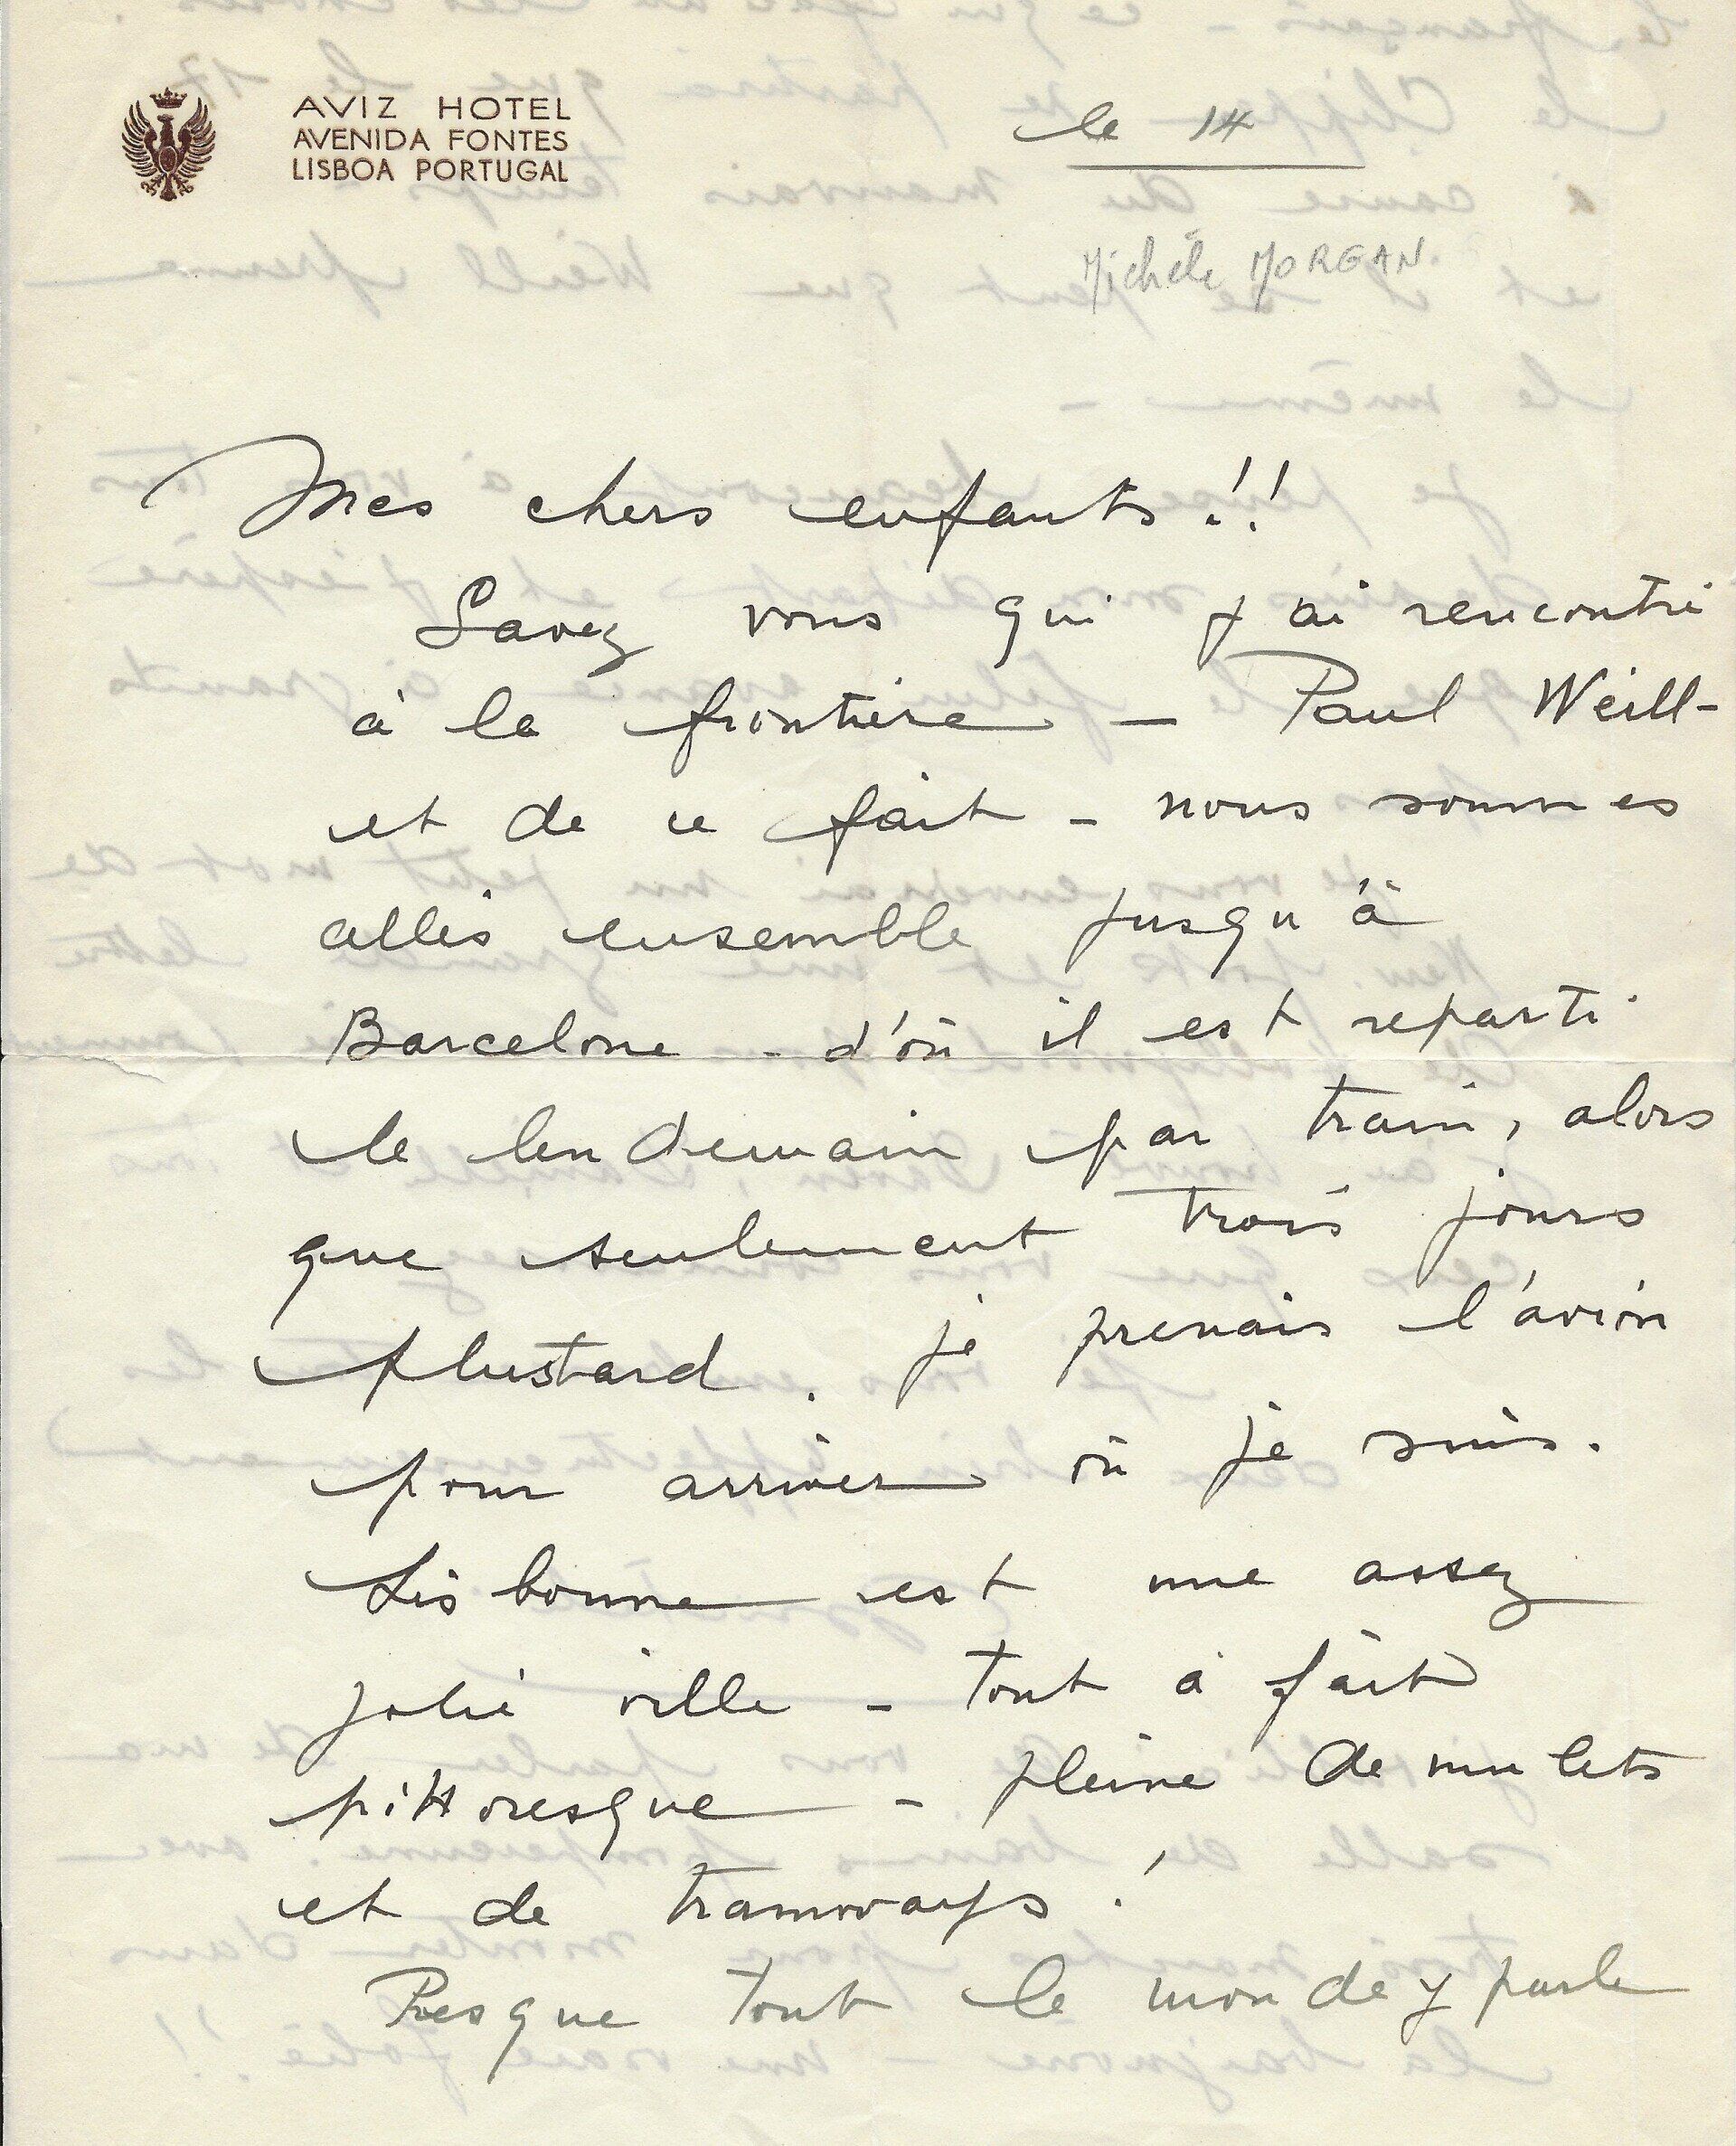 AVIZ HOTEL
AVENIDA FONTES
LISBOA PORTUGAL
le 14
Michèle MORGAN.
Mes chers enfants !!
Savez vous qui j'ai rencontré
à la frontière — Paul Weill -
et de ce fait - nous sommes
allés ensemble jusqu'à
Barcelone - d'où il est reparti
le lendemain par train, alors
que seulement trois jours
plustard. je prenais l'avion
pour arriver où je suis.
Lisbonne est une assez
jolie ville - tout à fait
pittoresque - pleine de mulets
et de tramways !
Presque tout le monde y parle